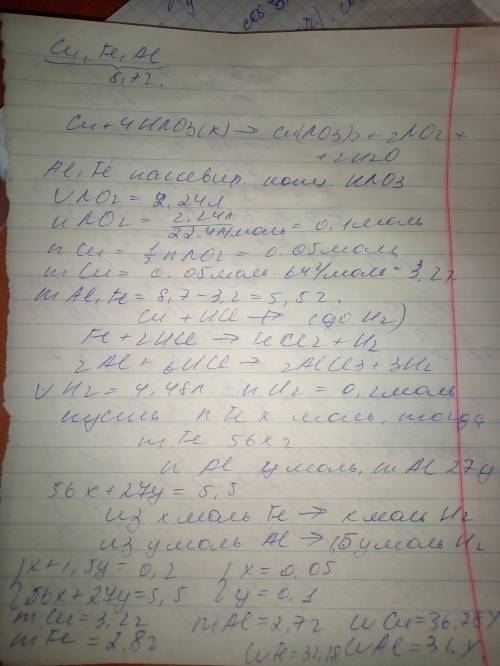 Cu, Fe, Al
8,7г.
Cu + 4HNO3(к) → Cu(NO3)2 + 2NO2 +
+ 2H2O
Al, Fe пассивир. конц. HNO3
V NO2 = 2.24л
n NO2 = 2.24л / 22.4л/моль = 0.1моль
n Cu = 1/2 n NO2 = 0.05моль
m Cu = 0.05моль·64г/моль = 3,2г
m Al, Fe = 8,7 - 3,2 = 5,5г.
Cu + HCl (до H2)
Fe + 2HCl → FeCl2 + H2
2Al + 6HCl → 2AlCl3 + 3H2
V H2 = 4,48л. n H2 = 0,2моль
пусть n Fe x моль, тогда
m Fe 56x г
n Al y моль, m Al 27y
56x + 27y = 5,5
из x моль Fe → x моль H2
из y моль Al → 1,5y моль H2
{x + 1,5y = 0,2 {x = 0,05
{56x + 27y = 5,5 {y = 0.1
m Cu = 3,2г m Al = 2,7г w Cu = 36,78%
m Fe = 2,8г w Fe = 32,18 w Al = 31%